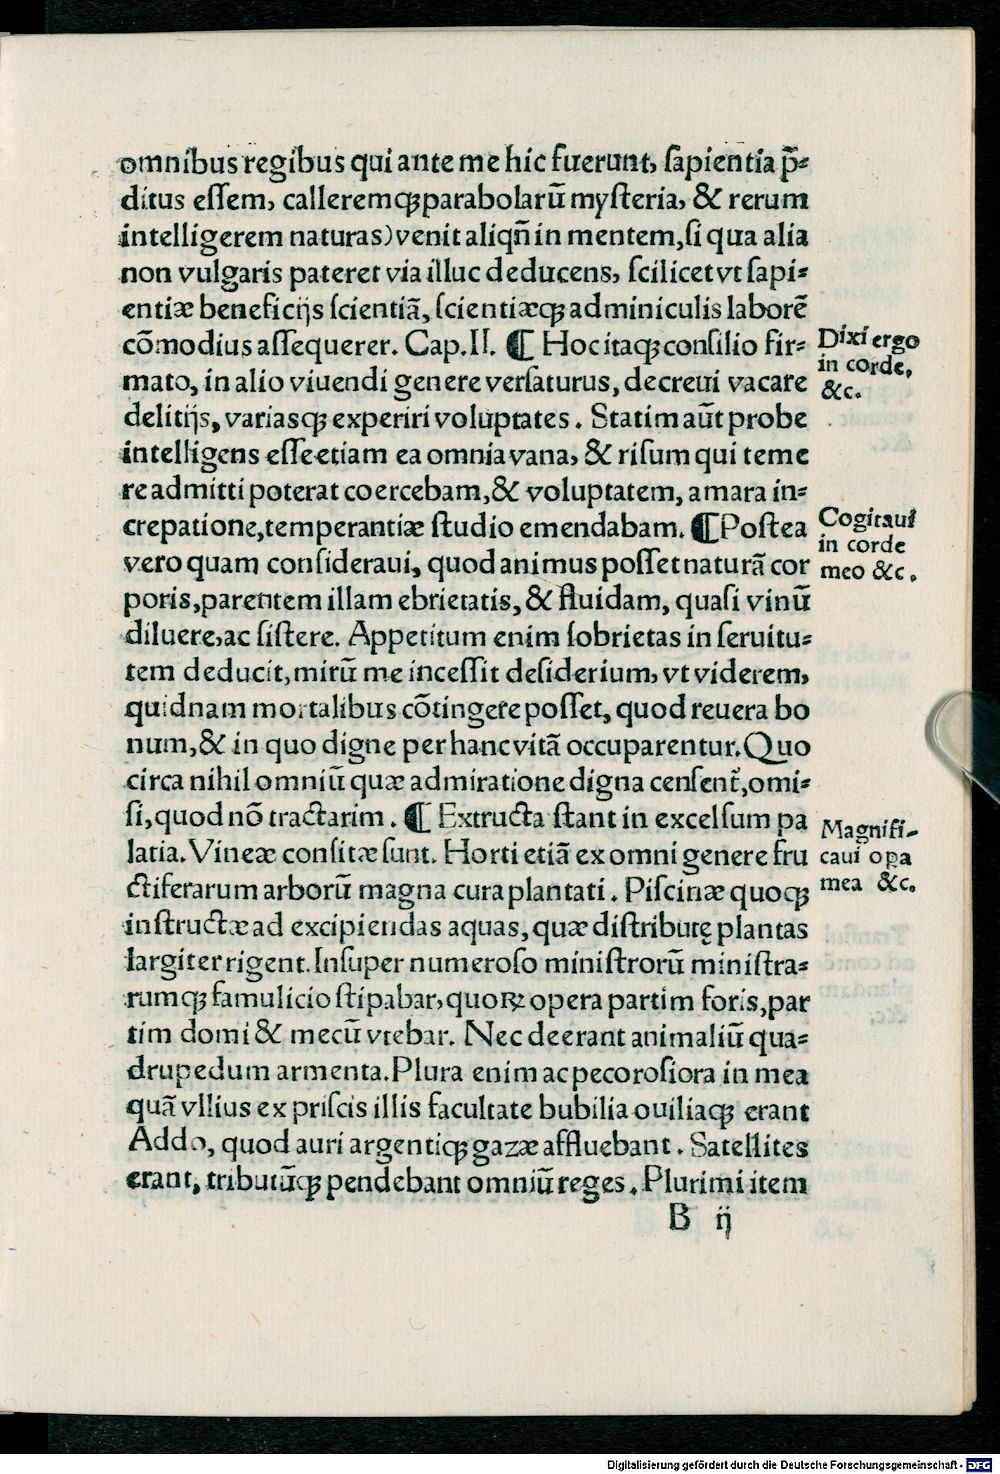 omnibus regibus qui ante me hic fuerunt, ſapientia p̄⸗
ditus eſſem, calleremqꝫ parabolarū myſteria, & rerum
intelligerem naturas) venit aliqñ in mentem, ſi qua alia
non vulgaris pateret via illuc deducens, ſcilicet vt ſapi⸗
entiæ beneficijs ſcientiā, ſcientiæqꝫ adminiculis laborē
cōmodius aſſequerer. Cap.II. ¶ Hoc itaqꝫ conſilio fir⸗
mato, in alio viuendi genere verſaturus, decreui vacare
delitijs, variasqꝫ experiri voluptates. Statim aūt probe
intelligens eſſe etiam ea omnia vana, & riſum qui teme
re admitti poterat coercebam, & voluptatem, amara in⸗
crepatione, temperantiæ ſtudio emendabam. ¶ Poſtea
vero quam conſideraui, quod animus poſſet naturā cor
poris, parentem illam ebrietatis, & fluidam, quaſi vinū
diluere, ac ſiſtere. Appetitum enim ſobrietas in ſeruitu⸗
tem deducit, mirū me inceſſit deſiderium, vt viderem,
quidnam mortalibus cōtingere poſſet, quod reuera bo
num, & in quo digne per hanc vitā occuparentur. Quo
circa nihil omniū quæ admiratione digna cenſent᷑, omi⸗
ſi, quod nō tractarim. ¶ Extructa ſtant in excelſum pa
latia. Vineæ conſitæ ſunt. Horti etiā ex omni genere fru
ctiferarum arborū magna cura plantati. Piſcinæ quoqꝫ
inſtructæ ad excipiendas aquas, quæ diſtributę plantas
largiter rigent. Inſuper numeroſo miniſtrorū miniſtra⸗
rumqꝫ famulicio ſtipabar, quoꝝ opera partim foris, par
tim domi & mecū vtebar. Nec deerant animaliū qua⸗
drupedum armenta. Plura enim ac pecoroſiora in mea
quā vllius ex priſcis illis facultate bubilia ouiliaqꝫ erant
Addo, quod auri argentiqꝫ gazæ affluebant. Satellites
erant, tributūqꝫ pendebant omniū reges. Plurimi item
B ij
Dixi ergo
in corde,
&c.
Cogitaui
in corde
meo &c.
Magnifi⸗
caui opa
mea &c.
Digitalisierung gefördert durch die Deutsche Forschungsgemeinschaft - DFG